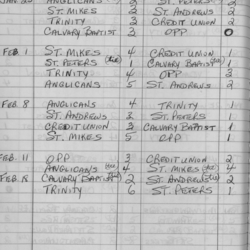 ST. MIKES 2 ST. ANDREWS 2
TRINITY 3 CREDIT UNION 2
CALVARY BAPTIST 3 OPP 0
FEB. 1 ST. MIKES 4 CREDIT UNION 1
ST. PETERS (tie) 1 CALVARY BAPTIST (tie) 1
TRINITY 4 OPP 3
ANGLICANS 5 ST. ANDREWS 2
FEB 8 ANGLICANS 4 TRINITY 1
ST. ANDREWS 3 ST. PETERS 1
CREDIT UNION 3 CALVARY BAPTIST 1
ST. MIKES 5 OPP 1
FEB. 11 OPP 3 CREDIT UNION 2
ANGLICANS (tie) 4 ST. MIKES (tie) 4
FEB. CALVARY BAPTIST (tie) 2 ST. ANDREWS (tie) 2
TRINITY 6 ST. PETERS 1